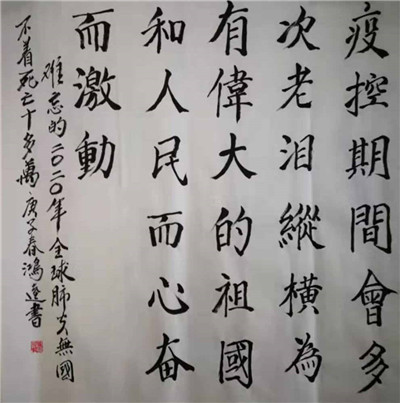 疫控期間會多
次老泪縱横為
有偉大的祖國
和人民而心奋
而激動
难忘的二〇二〇年全球肺炎無國
不着死亡十多萬庚子春鴻逵書